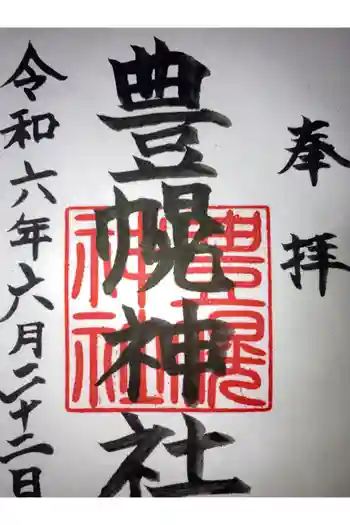 奉拝
豊幌神社
令和六年六月二十二日
豊幌神社